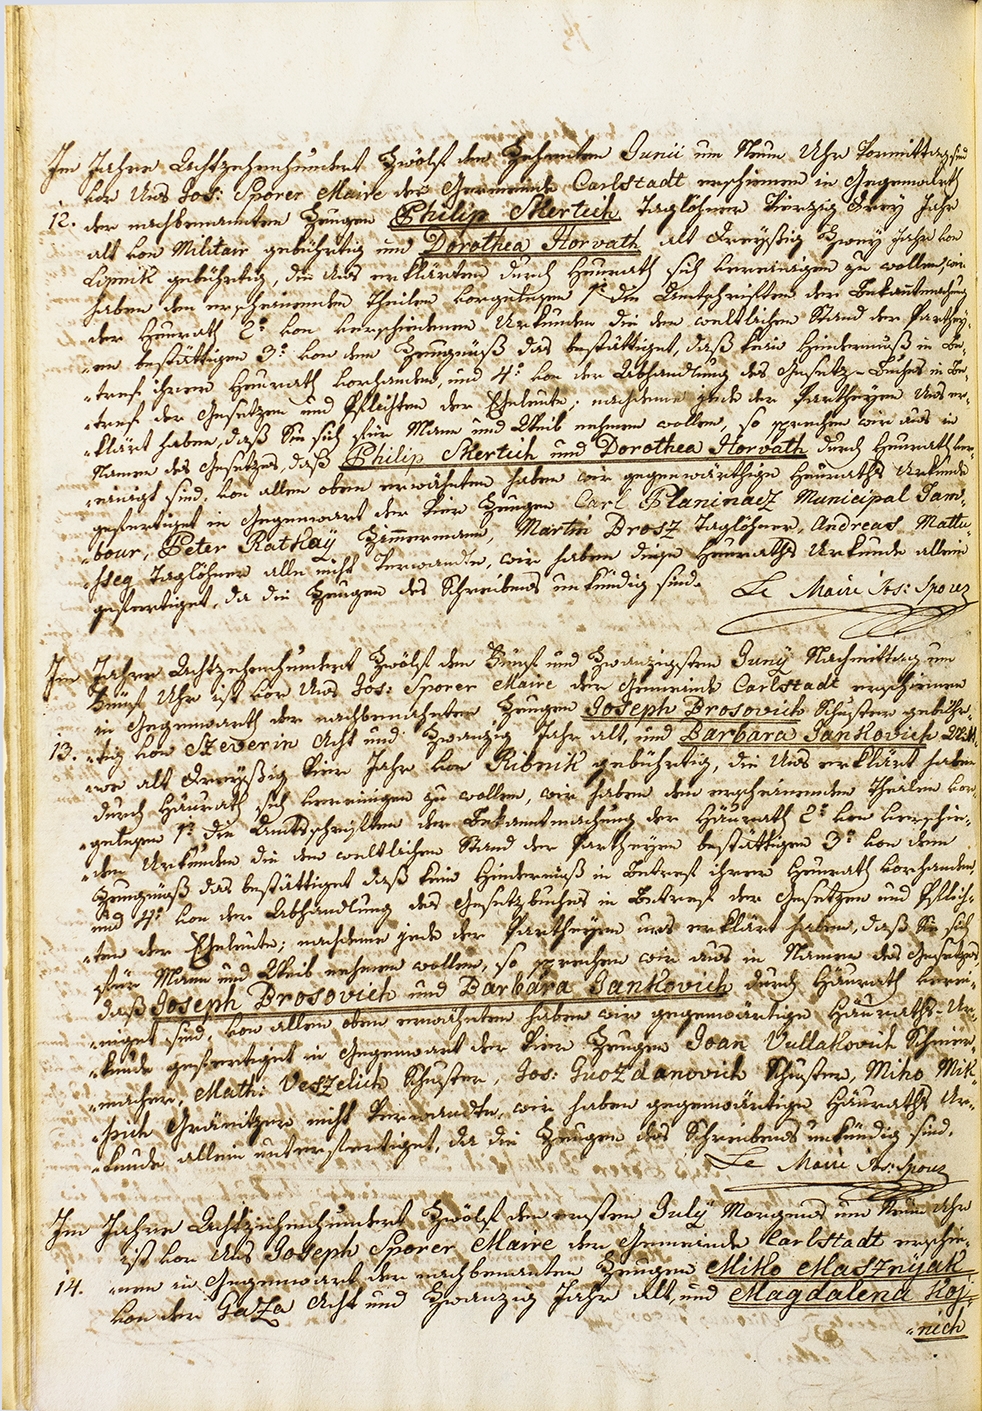 Im Jahre Achtzehenhundert Zwölf den Zehenten Junii um Neun Uhr Vormittag sind
vor Uns Jos: Sporer Maire der Gemeinde Carlstadt erschienen in Gegenwarth
12. der nachbenanten Zeugen Philip Skertich Taglöhner Vierzig Drey Jahr
alt von Militair gebührtig und Dorothea Horvath alt Dreyßig Zwey Jahr von
Lipnik gebührtig, die Uns erklärten durch Heurath sich vereinigen zu wollen, wir
haben den erscheinenden Theilen vorgelesen 1º die Amtsschriften der Bekantmachung
der Heurath 2º von verschiedenen Urkunden die den weltlichen Stand der Parthey-
-en bestättigen 3º von dem Zeugnüß das bestättiget, daß kein Hindernuß in Be-
-tref ihrer Heurath vorhanden, und 4º von der Abhandlung des Gesetz-Buches in Be-
-tref der Gesetzen und Pflichten der Eheleute; nachdeme jede der Partheyen Uns er-
-klärt haben, daß Sie sich für Mann und Weib nehmen wollen, so sprechen wir aus in
Namen des Gesetzes, daß Philip Skertich und Dorothea Horvath durch Heurath ver-
-einigt sind, von allen oben erwähnten haben wir gegenwärthige Heuraths Urkunde
gefertiget in Gegenwart der vier Zeugen Carl Planinacz Municipal Tam-
-bour, Peter Rathay Zimmermann, Martin Drosz Taglöhner, Andreas Mattu-
-hseg Taglöhner alle nicht Verwandte, wir haben diese Heuraths Urkunde allein
gefertiget, da die Zeugen des Schreibens unkündig sind.
Le Maire Jos: Sporer
Im Jahre Achtzehenhundert Zwölf den Fünf und Zwanzigsten Juny Nachmittag um
Fünf Uhr ist vor Uns Jos: Sporer Maire der Gemeinde Carlstadt erschienen
in Gegenwarth der nachbenahnten Zeugen Joseph Brosovich Schuster gebühr-
13. -tig von Szeverin Acht und Zwanzig Jahr alt, und Barbara Jankovich Witt-
-we alt Dreyßig Vier Jahr von Ribnik gebührtig, die Uns erklärt haben
durch Häurath sich vereinigen zu wollen, wir haben den erscheinenden Theilen vor-
-gelesen 1º die Amtsschriften der Bekanntmachung der Häurath 2º von verschie-
-den Urkunden die den weltlichen Stand der Partheyen bestättigen 3º von dem
Zeugnüß das bestättiget daß kein Hindernuß in Betref ihrer Heurath vorhanden,
und 4º von der Abhandlung des Gesetzbuches in Betref der Gesetzen und Pflich-
-ten der Eheleute; nachdeme jede der Partheyen uns erklärt haben, daß Sie sich
für Mann und Weib nehmen wollen, so sprechen wir aus in Namen des Gesetzes
daß Joseph Brosovich und Barbara Jankovich durch Häurath verei-
-niget sind, von allen oben erwähnten haben wir gegenwärtige Häuraths-Ur-
-kunde gefertiget in Gegenwart der vier Zeugen Joan Vullakovich Schnür-
-macher, Math: Veszelich Schuster, Jos: Guozdanovich Schuster, Miho Mik-
-sich Gränitzer nicht Verwandte, wir haben gegenwärtige Häuraths Ur-
-kunde allein unterfertiget, da die Zeugen des Schreibens unkündig sind.
Le Maire Jos: Sporer
Im Jahre Achtzehenhundert Zwölf den ersten July Morgens um Neun Uhr
ist vor Uns Joseph Sporer Maire der Gemeinde Carlstadt erschie-
14. -nen in Gegenwart der nachbenanten Zeugen Miko Masznyak
von der Gaza Acht und Zwanzig Jahr alt, und Magdalena Koj-
-nich